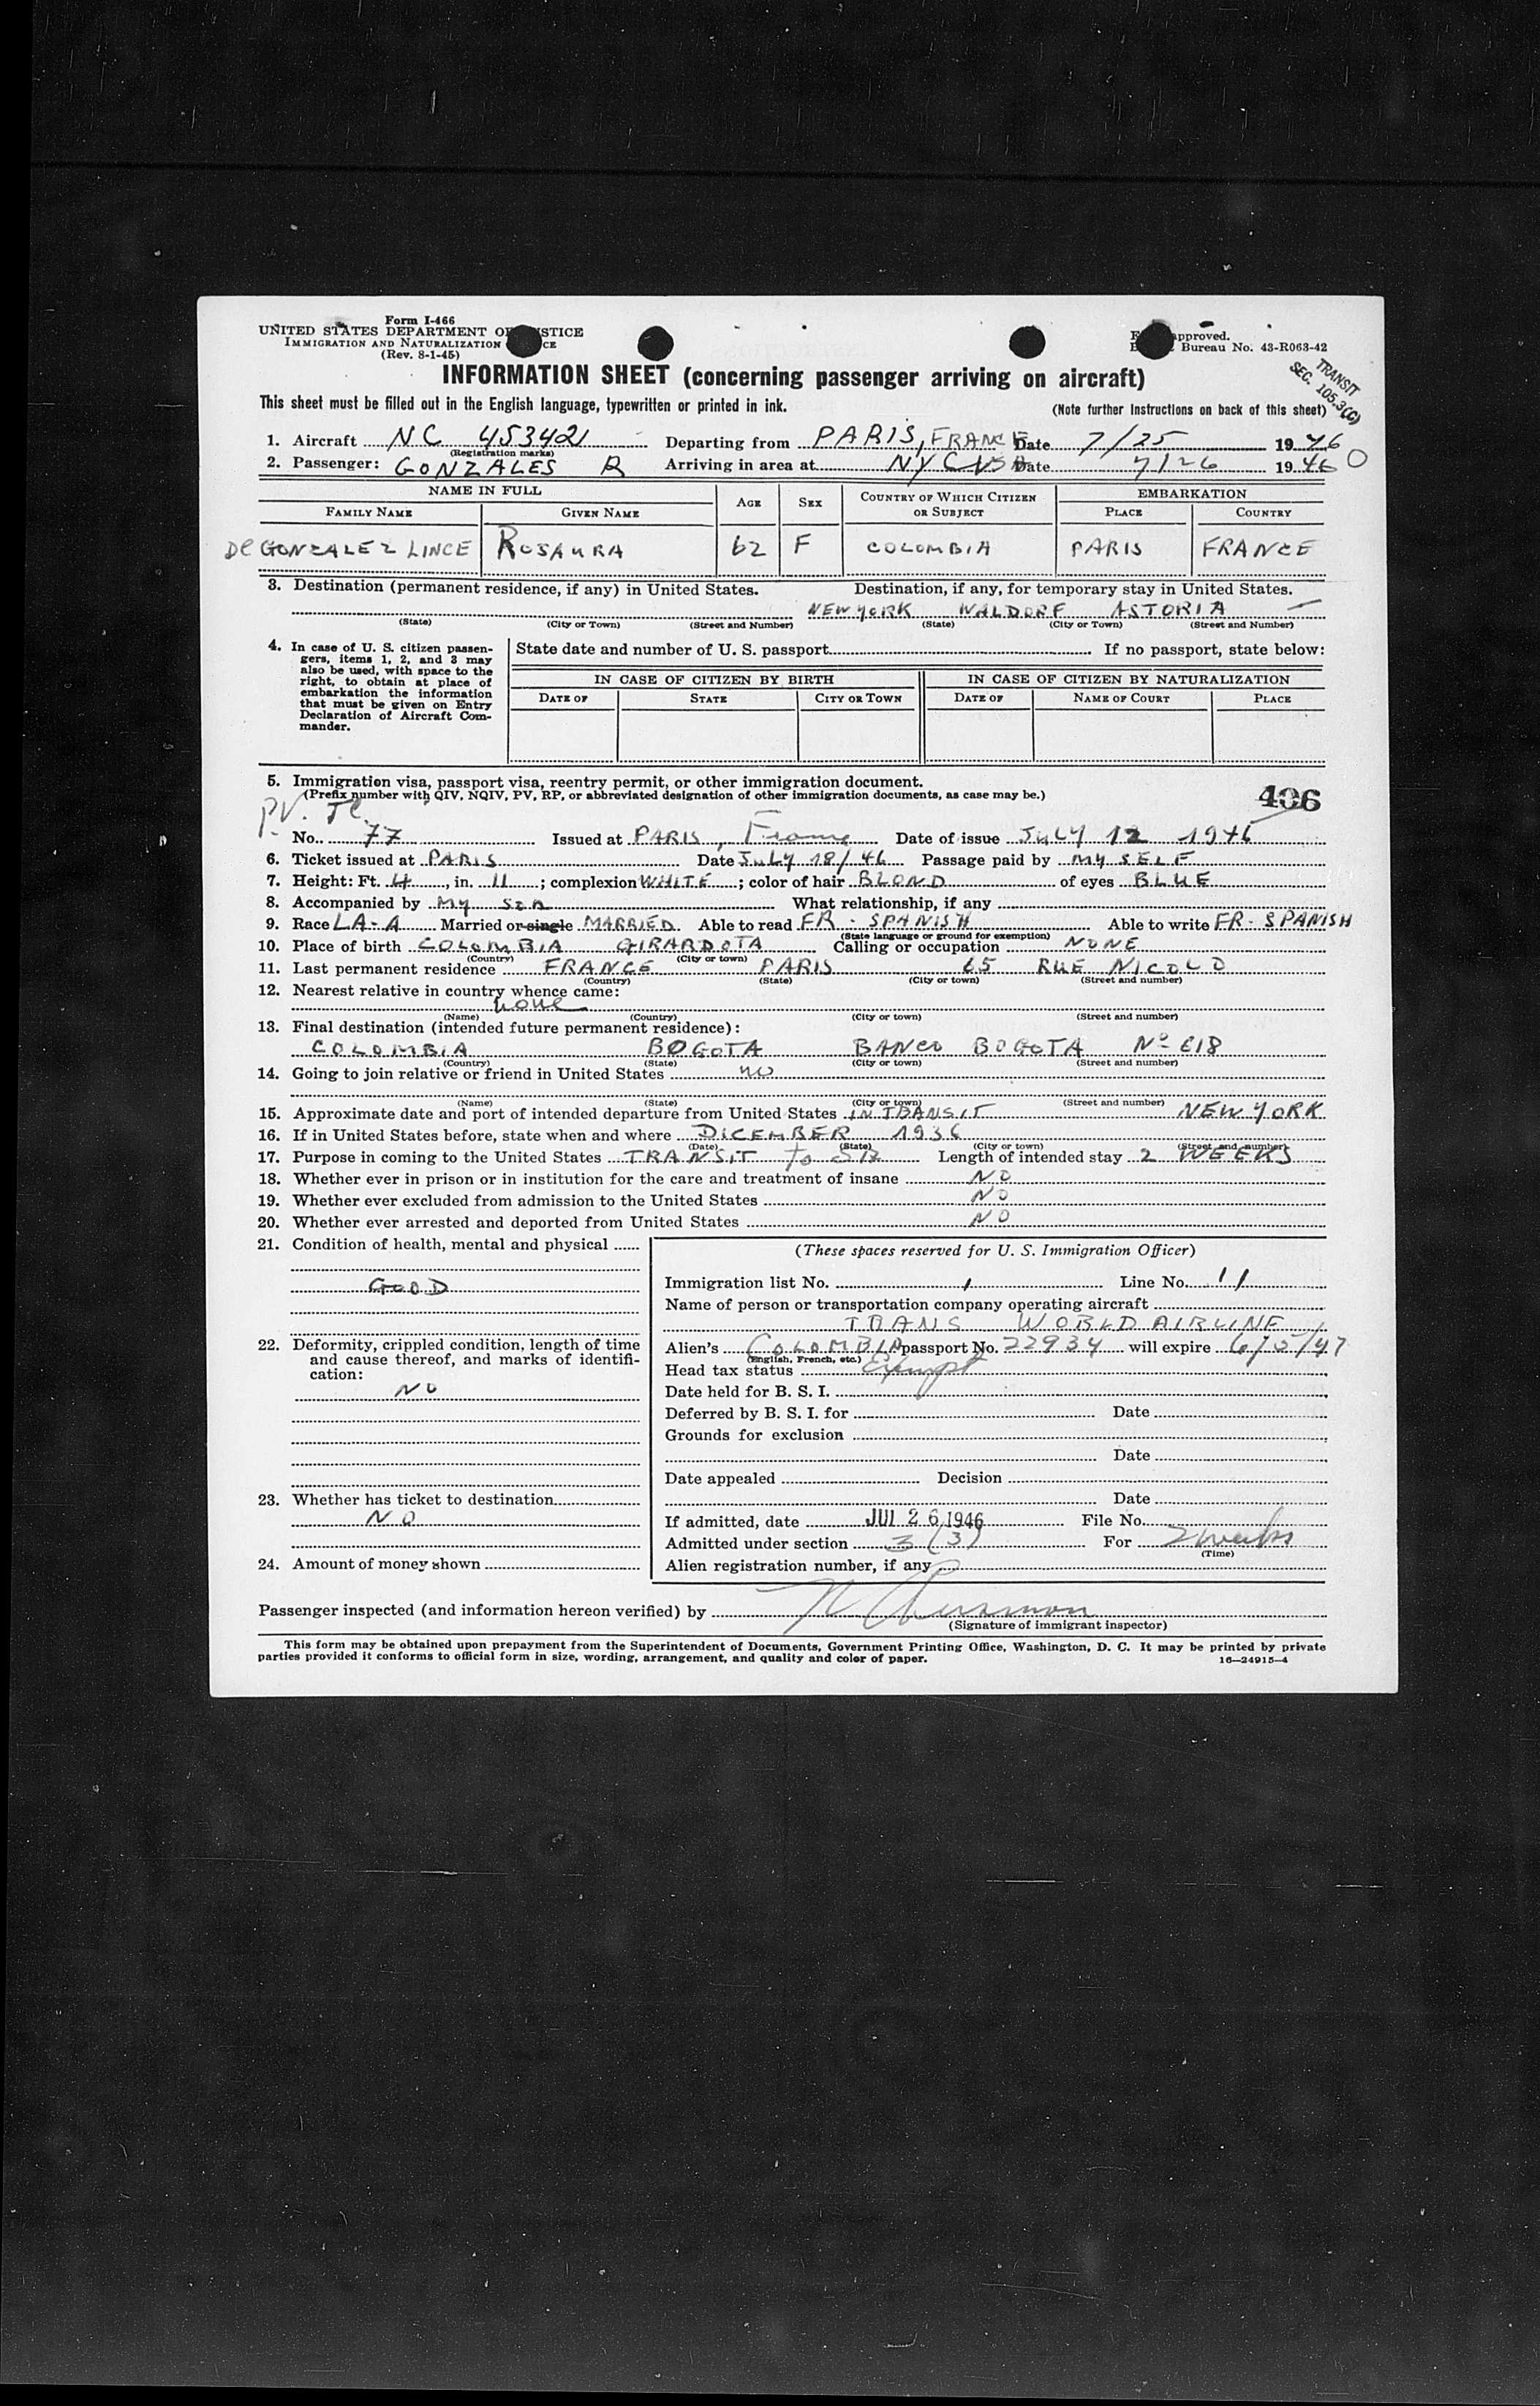 Form I-466
UNITED STATES DEPARTMENT OF JUSTICE
IMMIGRATION AND NATURALIZATION SERVICE
(Rev. 8-1-45)
approved.
Bureau No. 43-R063-42
TRANSIT
SEC. 105.3(G)
INFORMATION SHEET (concerning passenger arriving on aircraft)
This sheet must be filled out in the English language, typewritten or printed in ink.
(Note further instructions on back of this sheet)
1. Aircraft NC 45342 Departing from PARIS, FRANCE Date 7/25 1946
(Registration marks)
2. Passenger: GONZALES R Arriving in area at NYC Date 7/26 1946
NAME IN FULL
FAMILY NAME GIVEN NAME AGE SEX COUNTRY OF WHICH CITIZEN OR SUBJECT EMBARKATION PLACE COUNTRY
De GONZALEZ LINCE ROSAURA 62 F COLOMBIA PARIS FRANCE
3. Destination (permanent residence, if any) in United States. Destination, if any, for temporary stay in United States.
NEW YORK WALDORF ASTORIA
(State) (City or Town) (Street and Number) (State) (City or Town) (Street and Number)
4. In case of U. S. citizen passengers, items 1, 2, and 3 may also be used, with space to the right, to obtain at place of embarkation the information that must be given on Entry Declaration of Aircraft Commander.
State date and number of U. S. passport If no passport, state below:
IN CASE OF CITIZEN BY BIRTH IN CASE OF CITIZEN BY NATURALIZATION
DATE OF STATE CITY OR TOWN DATE OF NAME OF COURT PLACE
5. Immigration visa, passport visa, reentry permit, or other immigration document.
(Prefix number with QIV, NQIV, PV, RP, or abbreviated designation of other immigration documents, as case may be.)
406
PV.
No. 77 Issued at PARIS, France Date of issue JULY 12 1946
6. Ticket issued at PARIS Date JULY 18/46 Passage paid by MY SELF
7. Height: Ft. 4, in. 11; complexion WHITE; color of hair BLOND of eyes BLUE
8. Accompanied by My son What relationship, if any
9. Race LA-A Married or single MARRIED Able to read FR - SPANISH Able to write FR - SPANISH
(State language or ground for exemption)
10. Place of birth COLOMBIA GIRARDOTA Calling or occupation NONE
(Country) (City or town)
11. Last permanent residence FRANCE PARIS 65 RUE NICOLO
(Country) (State) (City or town) (Street and number)
12. Nearest relative in country whence came:
none
(Name) (Country) (City or town) (Street and number)
13. Final destination (intended future permanent residence):
COLOMBIA BOGOTA BANCO BOGOTA Nº 618
(Country) (State) (City or town) (Street and number)
14. Going to join relative or friend in United States no
(Name) (State) (City or town) (Street and number)
15. Approximate date and port of intended departure from United States IN TRANSIT NEW YORK
16. If in United States before, state when and where DICEMBER 1936
(Date) (State) (City or town) (Street and number)
17. Purpose in coming to the United States TRANSIT to Length of intended stay 2 WEEKS
18. Whether ever in prison or in institution for the care and treatment of insane NO
19. Whether ever excluded from admission to the United States NO
20. Whether ever arrested and deported from United States NO
21. Condition of health, mental and physical
GOOD
22. Deformity, crippled condition, length of time and cause thereof, and marks of identification:
NO
23. Whether has ticket to destination
NO
24. Amount of money shown
(These spaces reserved for U. S. Immigration Officer)
Immigration list No. 1 Line No. 11
Name of person or transportation company operating aircraft
TRANS WORLD AIRLINE
Alien's COLOMBIA passport No. 22934 will expire 6/5/47
(English, French, etc.)
Head tax status Exempt
Date held for B. S. I.
Deferred by B. S. I. for Date
Grounds for exclusion
Date
Date appealed Decision
Date
If admitted, date JUL 26 1946 File No.
Admitted under section 3 (3) For 2 weeks
(Time)
Alien registration number, if any
Passenger inspected (and information hereon verified) by
(Signature of immigrant inspector)
This form may be obtained upon prepayment from the Superintendent of Documents, Government Printing Office, Washington, D. C. It may be printed by private
parties provided it conforms to official form in size, wording, arrangement, and quality and color of paper.
16—24915-4